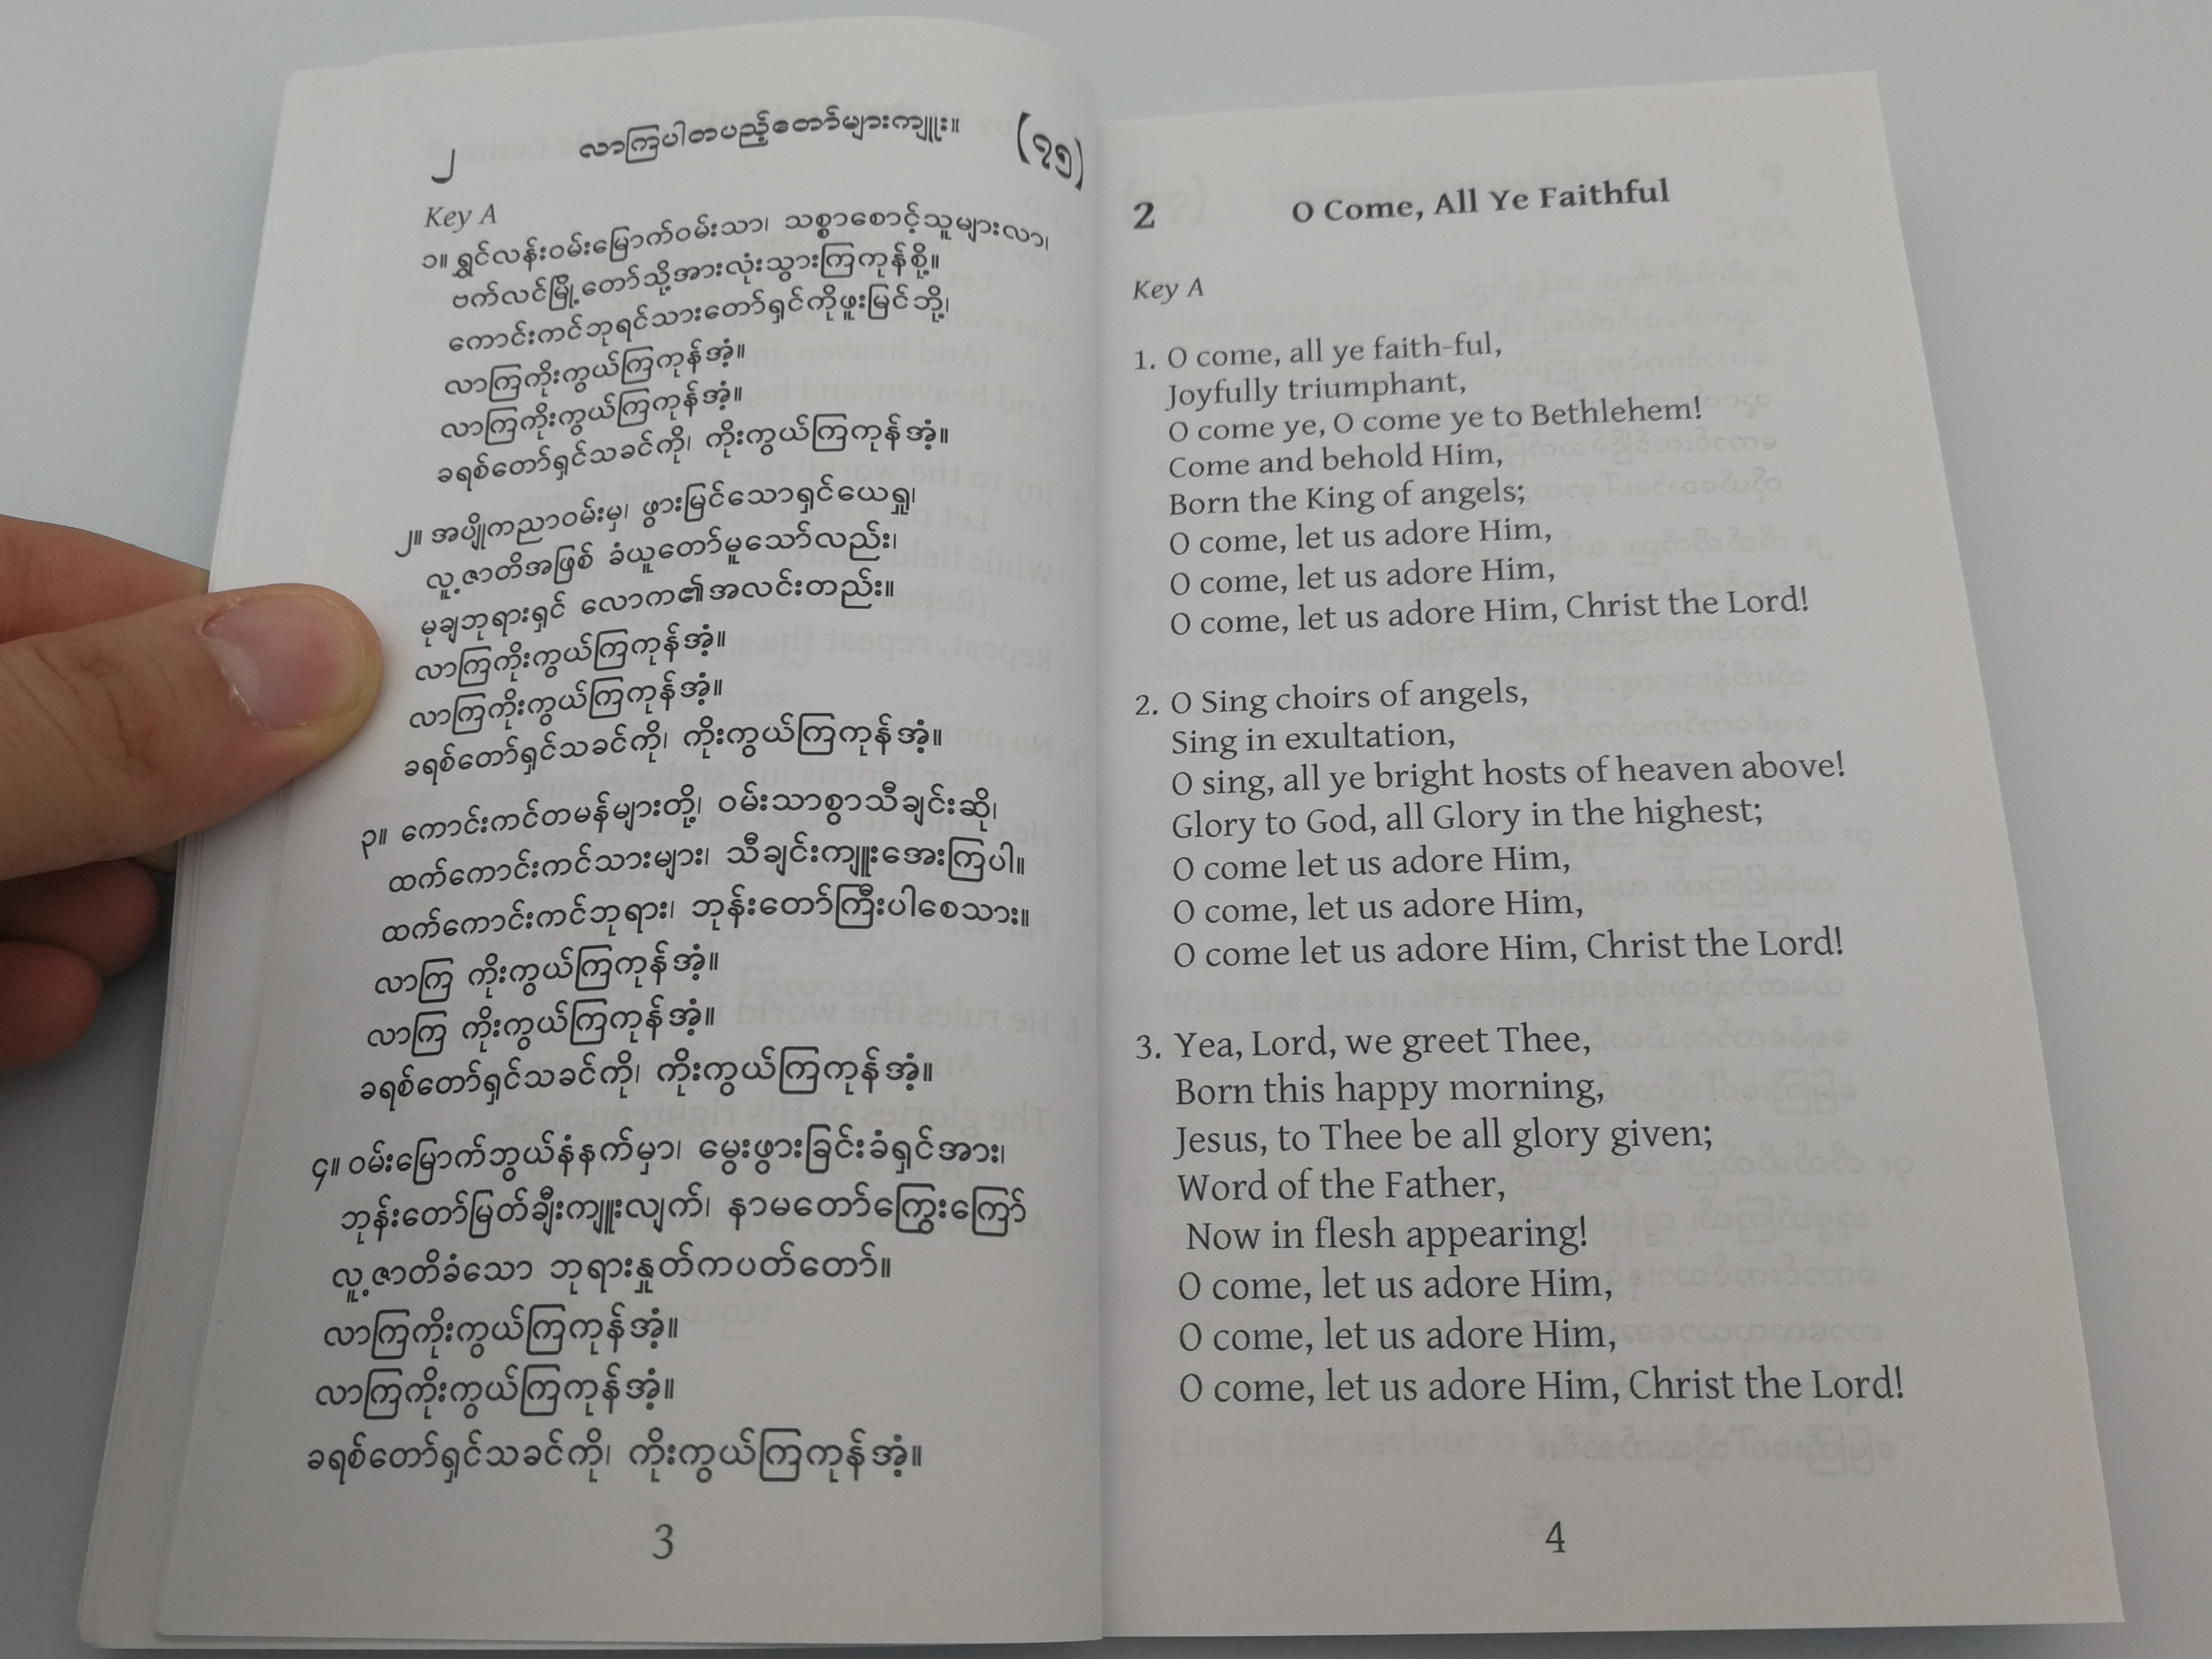 ၂ လာကြပါတပည့်တော်များကျူး။ (၇၅)
Key A
၁။ ရွှင်လန်းဝမ်းမြောက်ဝမ်းသာ၊ သစ္စာစောင့်သူများလာ၊
ဗက်လင်မြို့တော်သို့အားလုံးသွားကြကုန်စို့။
ကောင်းကင်ဘုရင်သားတော်ရှင်ကိုဖူးမြင်ဘို့၊
လာကြကိုးကွယ်ကြကုန်အံ့။
လာကြကိုးကွယ်ကြကုန်အံ့။
ခရစ်တော်ရှင်သခင်ကို၊ ကိုးကွယ်ကြကုန်အံ့။
၂။ အပျိုကညာဝမ်းမှ၊ ဖွားမြင်သောရှင်ယေရှု၊
လူ့ဇာတိအဖြစ် ခံယူတော်မူသော်လည်း၊
မုချဘုရားရှင် လောက၏အလင်းတည်း။
လာကြကိုးကွယ်ကြကုန်အံ့။
လာကြကိုးကွယ်ကြကုန်အံ့။
ခရစ်တော်ရှင်သခင်ကို၊ ကိုးကွယ်ကြကုန်အံ့။
၃။ ကောင်းကင်တမန်များတို့၊ ဝမ်းသာစွာသီချင်းဆို၊
ထက်ကောင်းကင်သားများ၊ သီချင်းကျူးအေးကြပါ။
ထက်ကောင်းကင်ဘုရား၊ ဘုန်းတော်ကြီးပါစေသား။
လာကြ ကိုးကွယ်ကြကုန်အံ့။
လာကြ ကိုးကွယ်ကြကုန်အံ့။
ခရစ်တော်ရှင်သခင်ကို၊ ကိုးကွယ်ကြကုန်အံ့။
၄။ ဝမ်းမြောက်ဘွယ်နံနက်မှာ၊ မွေးဖွားခြင်းခံရှင်အား၊
ဘုန်းတော်မြတ်ချီးကျူးလျက်၊ နာမတော်ကြွေးကြော်
လူ့ဇာတိခံသော ဘုရားနှုတ်ကပတ်တော်။
လာကြကိုးကွယ်ကြကုန်အံ့။
လာကြကိုးကွယ်ကြကုန်အံ့။
ခရစ်တော်ရှင်သခင်ကို၊ ကိုးကွယ်ကြကုန်အံ့။
3
2 O Come, All Ye Faithful
Key A
1. O come, all ye faith-ful,
Joyfully triumphant,
O come ye, O come ye to Bethlehem!
Come and behold Him,
Born the King of angels;
O come, let us adore Him,
O come, let us adore Him,
O come, let us adore Him, Christ the Lord!
2. O Sing choirs of angels,
Sing in exultation,
O sing, all ye bright hosts of heaven above!
Glory to God, all Glory in the highest;
O come let us adore Him,
O come, let us adore Him,
O come let us adore Him, Christ the Lord!
3. Yea, Lord, we greet Thee,
Born this happy morning,
Jesus, to Thee be all glory given;
Word of the Father,
Now in flesh appearing!
O come, let us adore Him,
O come, let us adore Him,
O come, let us adore Him, Christ the Lord!
4